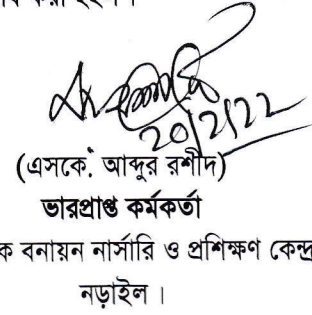 20/2/22
(এসকে. আব্দুর রশীদ)
ভারপ্রাপ্ত কর্মকর্তা
ক বনায়ন নার্সারি ও প্রশিক্ষণ কেন্দ্র
নড়াইল ।